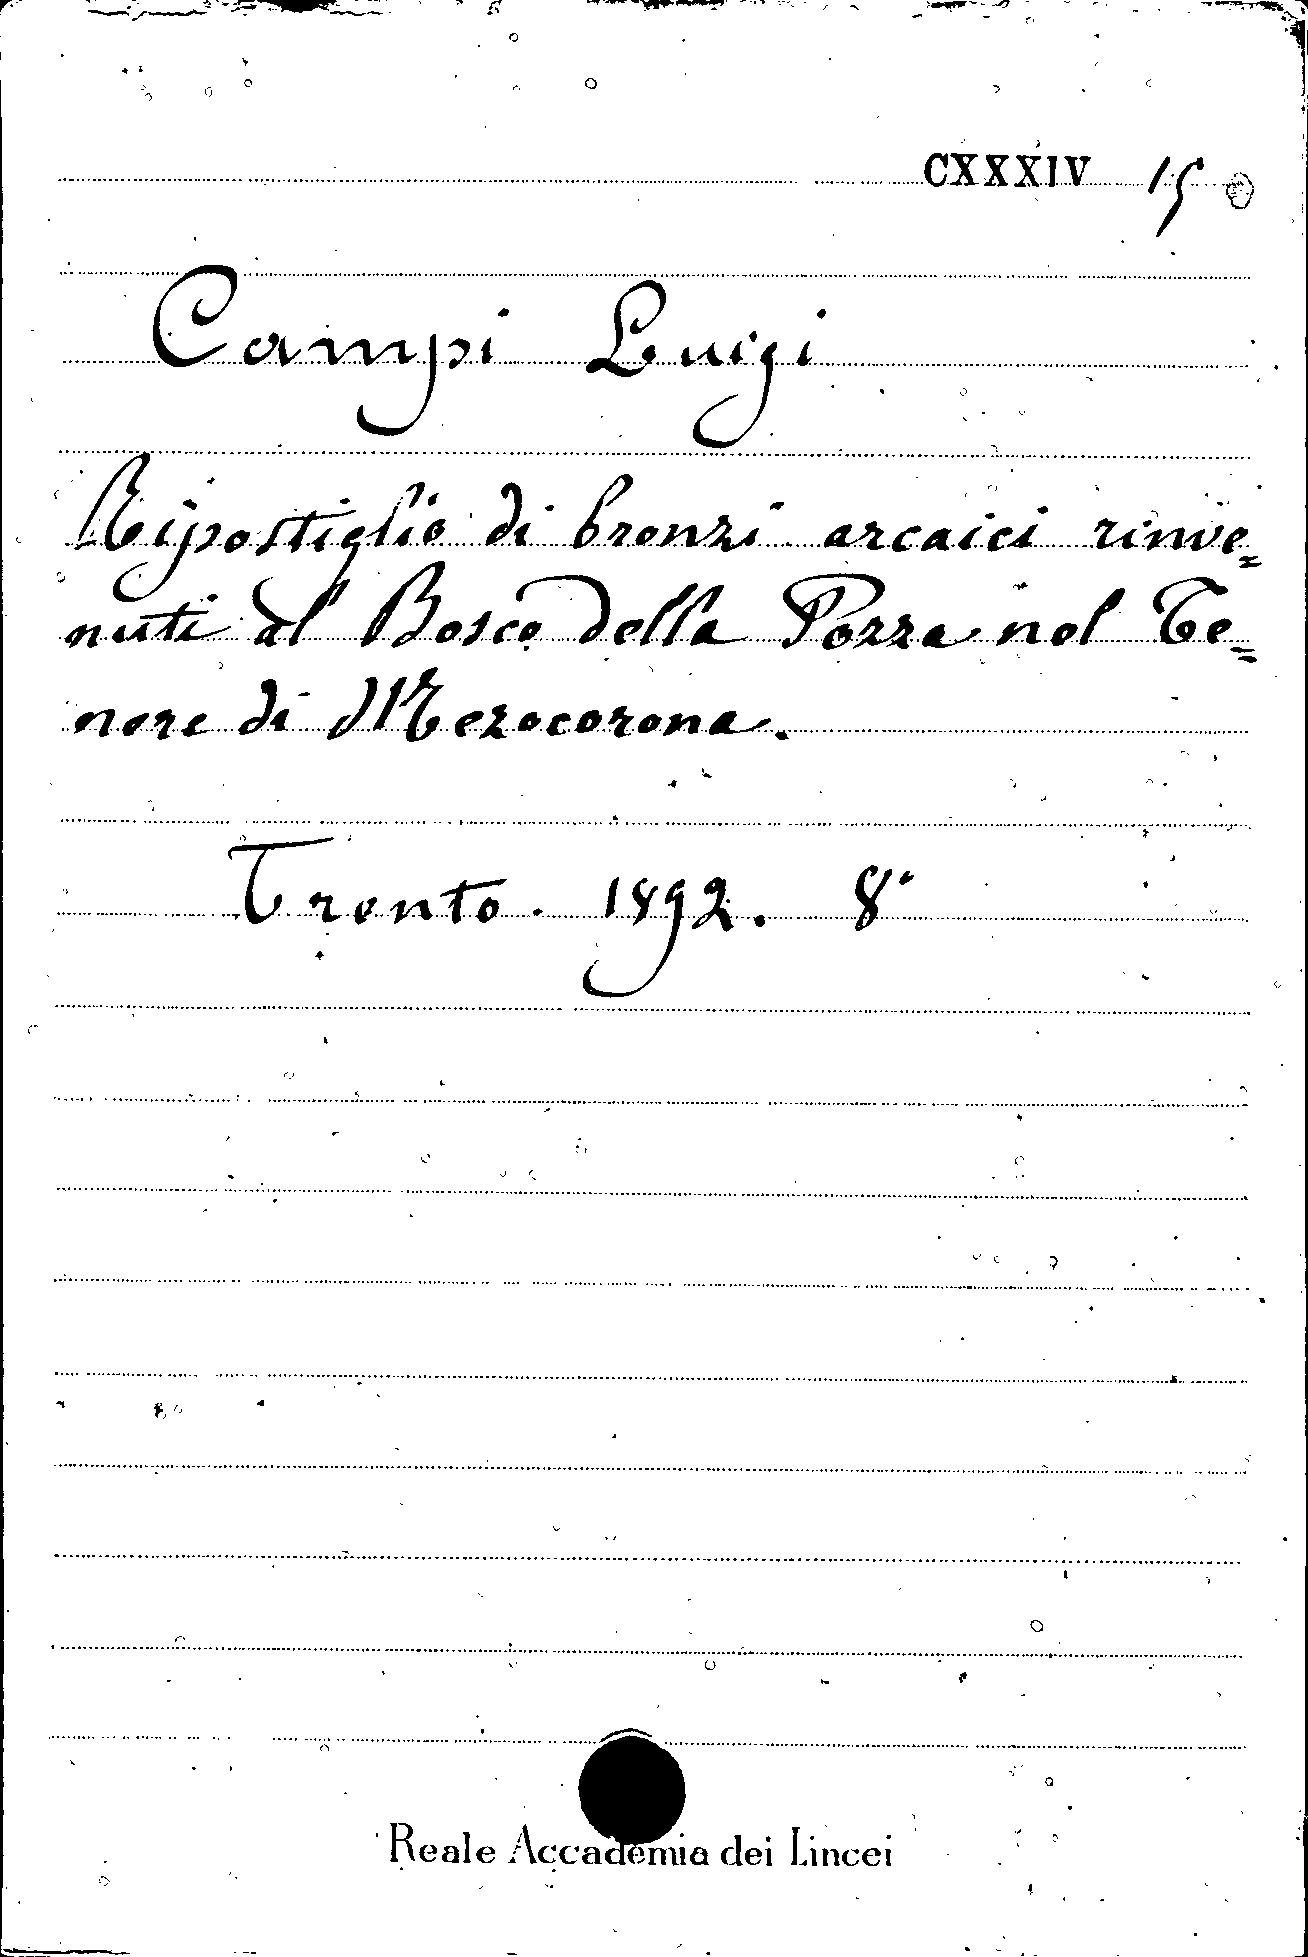 CXXXIV 15
Campi Luigi
Ripostiglio di bronzi arcaici rinve=
nuti al Bosco della Pozza nel Te=
nere di Mezocorona.
Trento. 1892. 8°
Reale Accademia dei Lincei